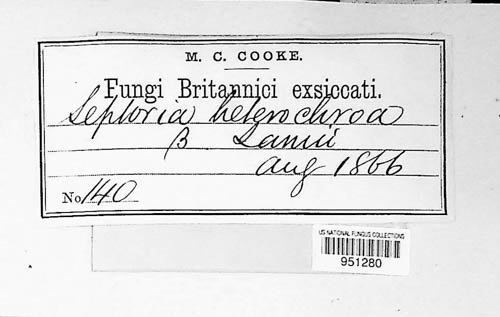 M. C. COOKE.
Fungi Britannici exsiccati.
Septoria heterochroa
β Lamii
Aug 1866
No 140
US NATIONAL FUNGUS COLLECTIONS
951280